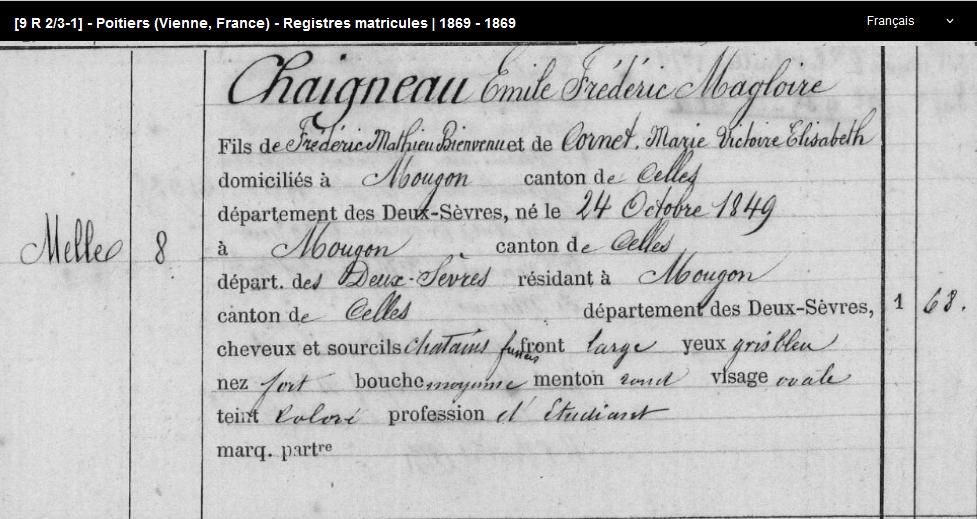 [9 R 2/3-1] - Poitiers (Vienne, France) - Registres matricules | 1869 - 1869
Français
Chaigneau Emile Frédéric Magloire
Fils de Frédéric Mathieu Bienvenu et de Cornet, Marie Victoire Elisabeth
domiciliés à Mougon canton de Celles
département des Deux-Sèvres, né le 24 Octobre 1849
Melle 8 à Mougon canton de Celles
départ. des Deux-Sèvres résidant à Mougon
canton de Celles département des Deux-Sèvres, 1 68.
cheveux et sourcils chatains front large yeux gris bleu
nez fort bouche moyenne menton rond visage ovale
teint Coloré profession d'Etudiant
marq. partre